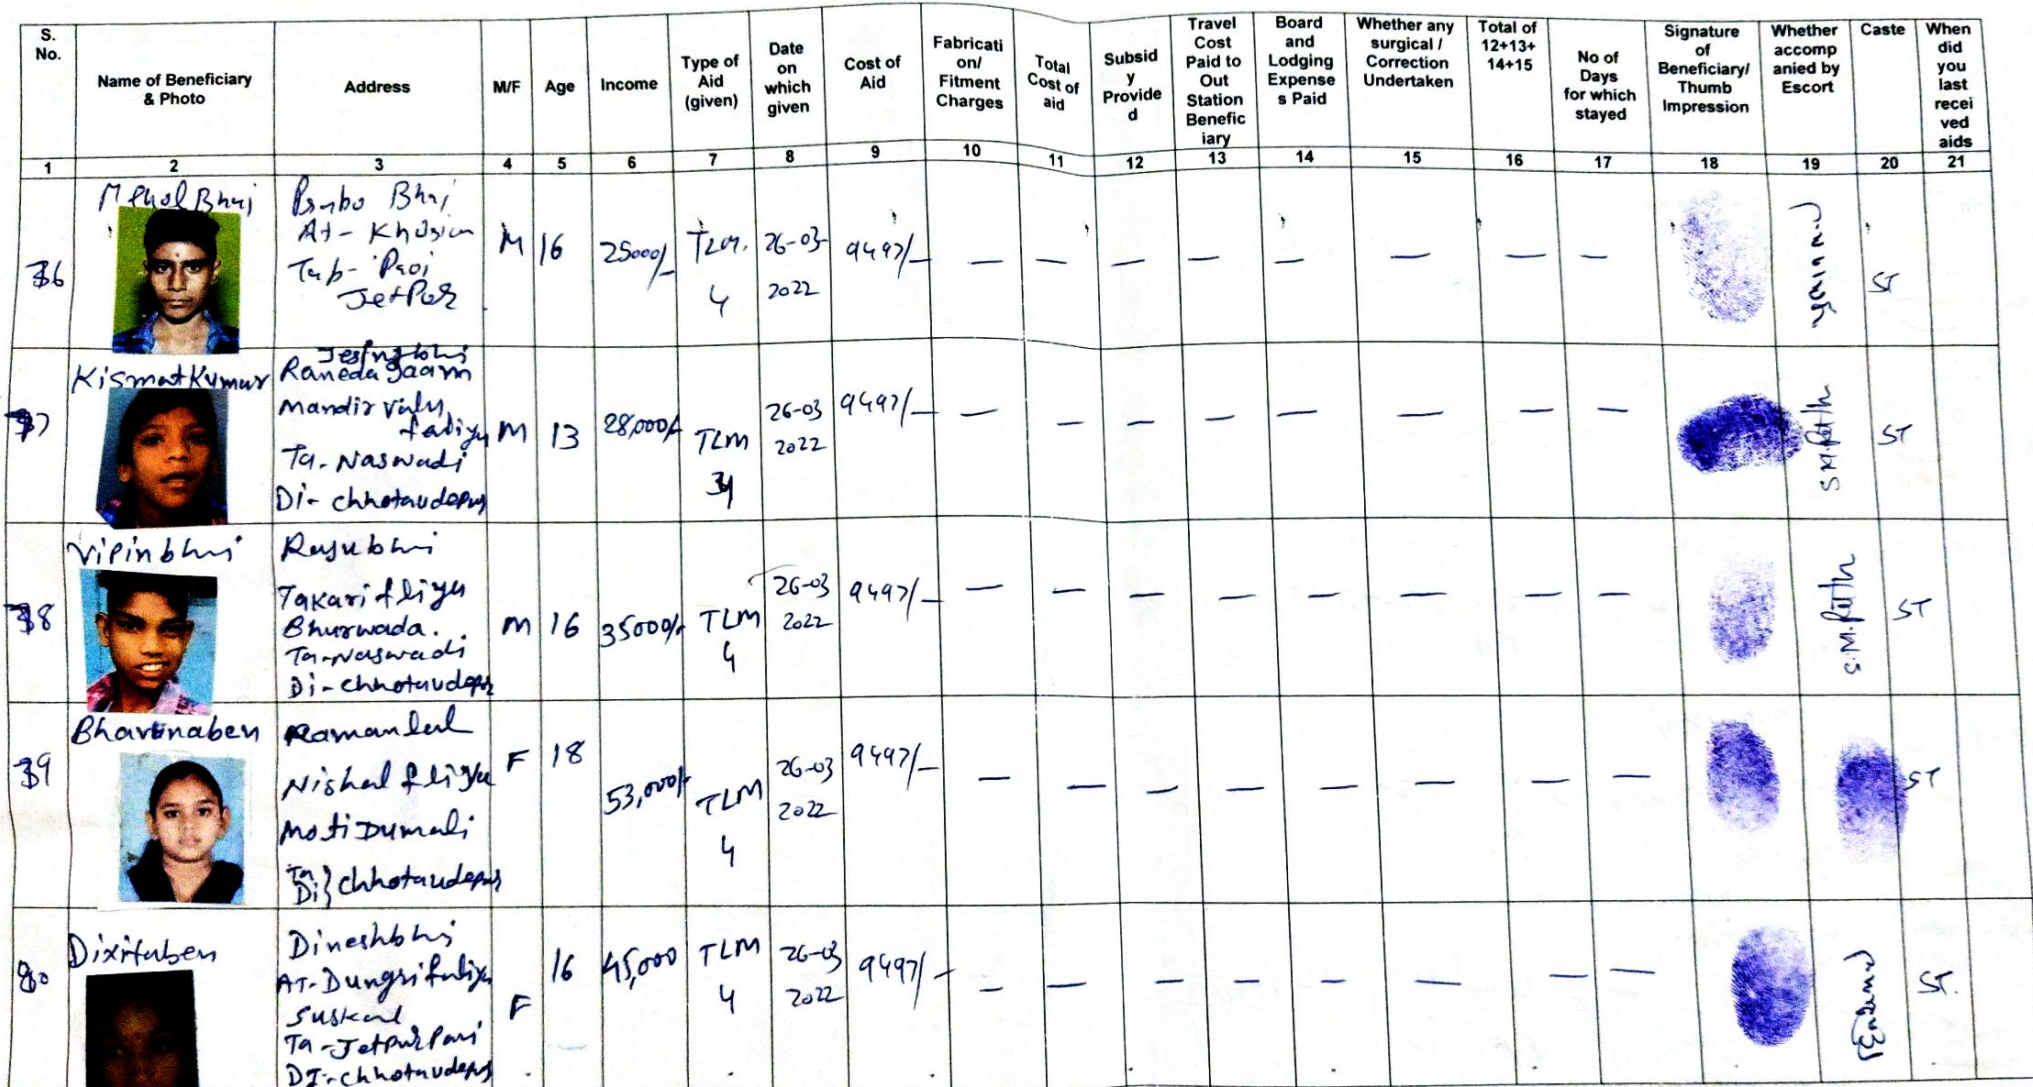 S. No.
Name of Beneficiary & Photo
Address
M/F
Age
Income
Type of Aid (given)
Date on which given
Cost of Aid
Fabricati on/ Fitment Charges
Total Cost of aid
Subsid y Provide d
Travel Cost Paid to Out Station Benefic iary
Board and Lodging Expense s Paid
Whether any surgical / Correction Undertaken
Total of 12+13+ 14+15
No of Days for which stayed
Signature of Beneficiary/ Thumb Impression
Whether accomp anied by Escort
Caste
When did you last recei ved aids
1 2 3 4 5 6 7 8 9 10 11 12 13 14 15 16 17 18 19 20 21
36
Bhai
At-
Jetpur
M 16 25000/- TLM. 4 26-03-2022 9497/- — — — — — — — — ST
37
KismatKumar
Mandir
faliyu
Ta. Naswadi
Di- chhotaudepur
M 13 28,000/- TLM 26-03 2022 9497/- — — — — — — — — ST
38
Vipinbhai
Rajubhai
Takari fliyu
Bhurwada.
Ta-Naswadi
Di-chhotaudepur
M 16 35000/- TLM 4 26-03 2022 9497/- — — — — — — — — ST
39
Bhavnaben
Ramanlal
Nishal fliyu
Moti Dumali
Ta Di} chhotaudepur
F 18 53,000/- TLM 4 26-03 2022 9497/- — — — — — — — — ST
80
Dixitaben
Dineshbhai
AT-Dungri faliyu
Suskal
Ta-Jetpur Pavi
DI-chhotaudepur
F 16 45,000 TLM 4 26-03 2022 9497/- — — — — — — — — ST.